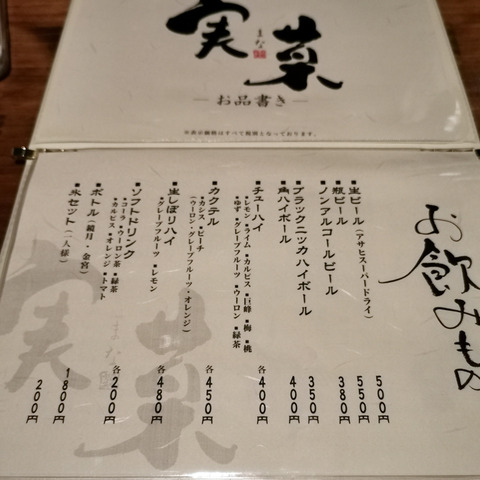 実菜
まな
お品書き
※表示価格はすべて税別となっております。
お飲みもの
生ビール（アサヒスーパードライ） 500円
瓶ビール 550円
ノンアルコールビール 380円
ブラックニッカハイボール 350円
角ハイボール 400円
チューハイ 各400円
レモン・ライム・カルピス・巨峰・梅・桃
ゆず・グレープフルーツ・ウーロン・緑茶
カクテル 各450円
カシス・ピーチ
（ウーロン・グレープフルーツ・オレンジ）
生しぼりハイ 各480円
グレープフルーツ・レモン
ソフトドリンク 各200円
コーラ・ウーロン茶・緑茶
カルピス・オレンジ・トマト
ボトル（鏡月・金宮） 1800円
氷セット（一人様） 200円
実菜
まな